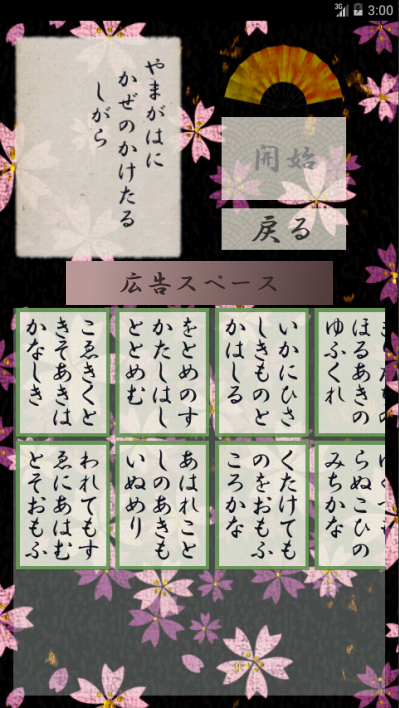 3G 3:00
やまがはに
かぜのかけたる
しがら
開始
戻る
広告スペース
こゑきくと
きそあきは
かなしき
をとめのす
かたしはし
ととめむ
いかにひさ
しきものと
かはしる
ほるあきの
ゆふくれ
われてもす
ゑにあはむ
とそおもふ
あはれこと
しのあきも
いぬめり
くたけても
のをおもふ
ころかな
らぬこひの
みちかな